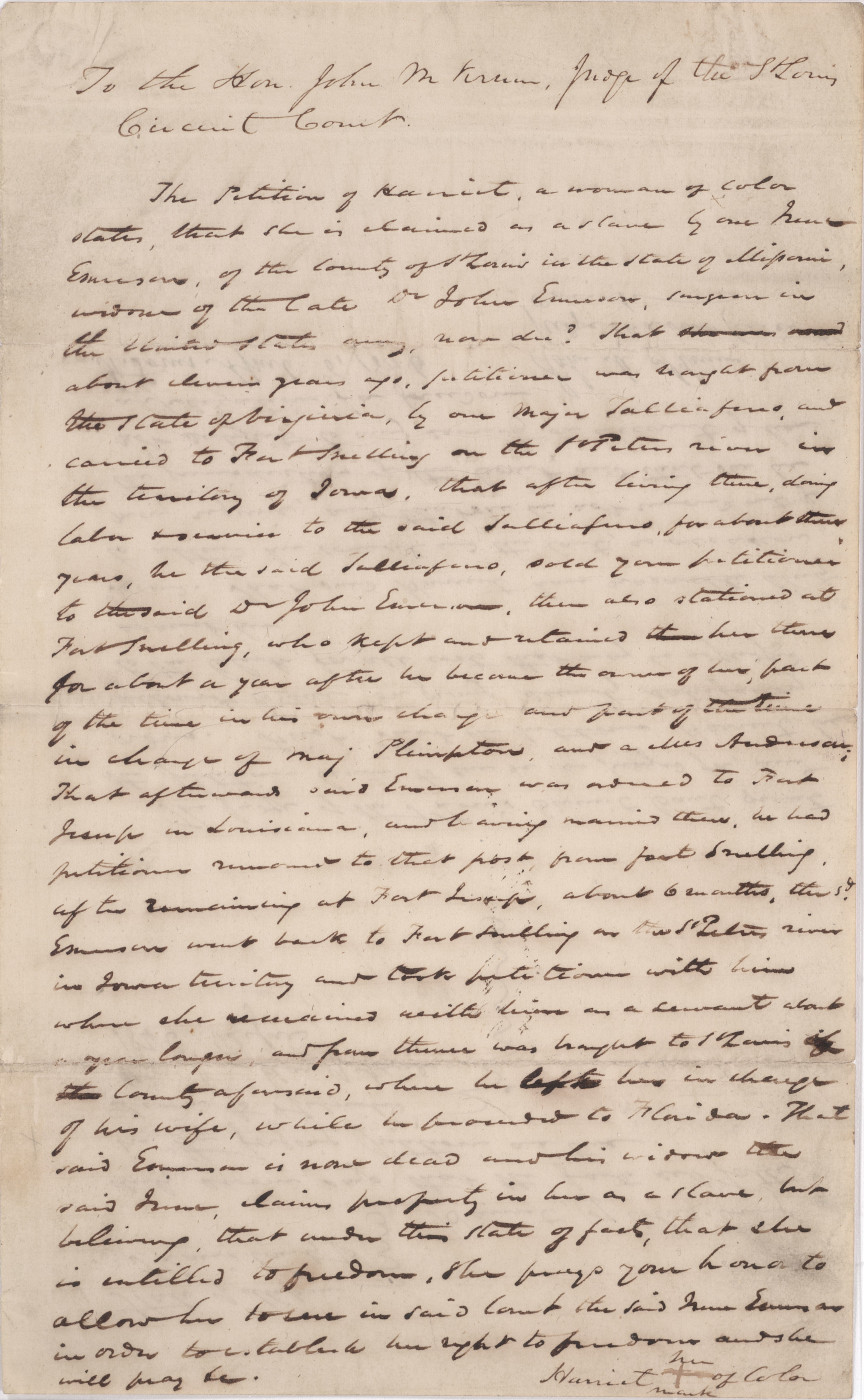 To the Hon. John M Krum, Judge of the St Louis
Circuit Court.
The Petition of Harriet, a woman of color
states, that she is claimed as a slave by one Irene
Emerson, of the County of St Louis in the State of Missouri,
widow of the late Dr John Emerson, surgeon in
the United States army, now decd. That
about eleven years ago, petitioner was bought from
the State of Virginia, by one Major Talliaferro, and
carried to Fort Snelling on the St Peters river in
the territory of Iowa, that after living there, doing
labor & service to the said Talliaferro, for about three
years, he the said Talliaferro, sold your petitioner
to the said Dr John Emerson, then also stationed at
Fort Snelling, who kept and retained her there
for about a year after he became the owner of her, part
of the time in his own charge and part of the time
in charge of Maj Plimpton, and a Mrs Anderson;
That afterwards said Emerson was ordered to Fort
Jesup in Louisiana, and having married there, he had
petitioner removed to that post from fort Snelling,
after remaining at Fort Jesup, about 6 months, the sd.
Emerson went back to Fort Snelling on the St Peters river
in Iowa territory and took petitioner with him
where she remained with him as a servant about
a year longer, and from thence was brought to St Louis
County aforesaid, where he left her in charge
of his wife, while he proceeded to Florida. That
said Emerson is now dead and his widow the
said Irene, claims property in her as a slave, but
believing, that under this state of facts, that she
is entitled to freedom, she prays your honor to
allow her to sue in said Court the said Irene Emerson
in order to establish her right to freedom and she
will pray &c.
her
Harriet + of Color
mark